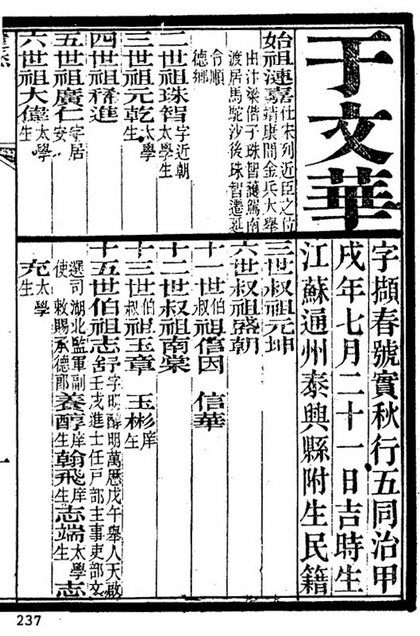 于文華
字擷春號實秋行五同治甲
戌年七月二十一日吉時生
江蘇通州泰興縣附生民籍
始祖漣嘉仕宋列近臣之位
靖康間金兵大舉
由汴梁偕子珠智護駕南
渡居馬駝沙後珠智遷延
令順
德鄉
二世祖珠智字近朝
太學生
三世祖元乾太學
生
四世祖稱進
五世祖廣仁字居
安
六世祖大偉太學
生
三世叔祖元坤
六世叔祖盛朝
十一世伯叔祖信因 信華
十二世叔祖南棠
十三世伯叔祖玉章 玉彬庠
生
十五世伯祖志舒字明醇明萬曆戊午舉人天啟
壬戌進士任戶部主事吏部文
選司湖北監軍副
使 敕賜承德郎養醇庠生翰飛太學生志端庠生志
充太學
生
237